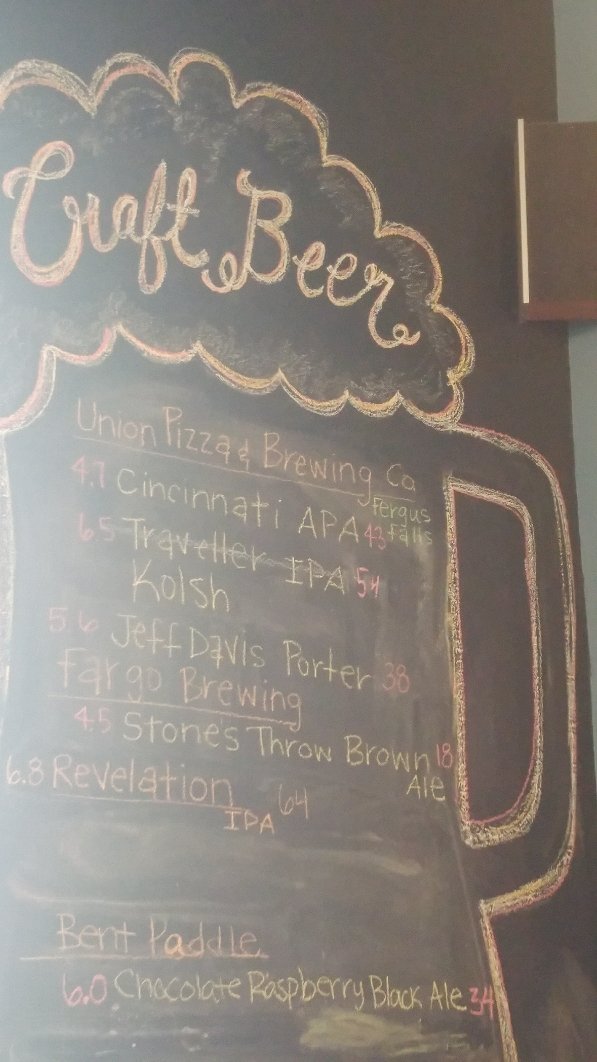 Craft Beer
Union Pizza & Brewing Co
Fergus Falls
4.7 Cincinnati APA 43
6.5 Traveller IPA 54
Kolsh
5.6 Jeff Davis Porter 38
Fargo Brewing
4.5 Stone's Throw Brown Ale 18
6.8 Revelation IPA 64
Bent Paddle
6.0 Chocolate Raspberry Black Ale 34